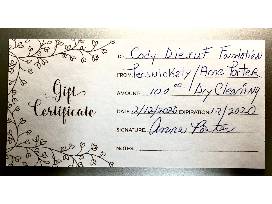 Gift
Certificate
TO: Cody Dieruf Foundation
FROM: Persnickety / Anne Porter
AMOUNT: 100 00 / Dry Cleaning
DATE 2/12/2020 EXPIRATION 12/2020
SIGNATURE: Anne Porter
NOTES: